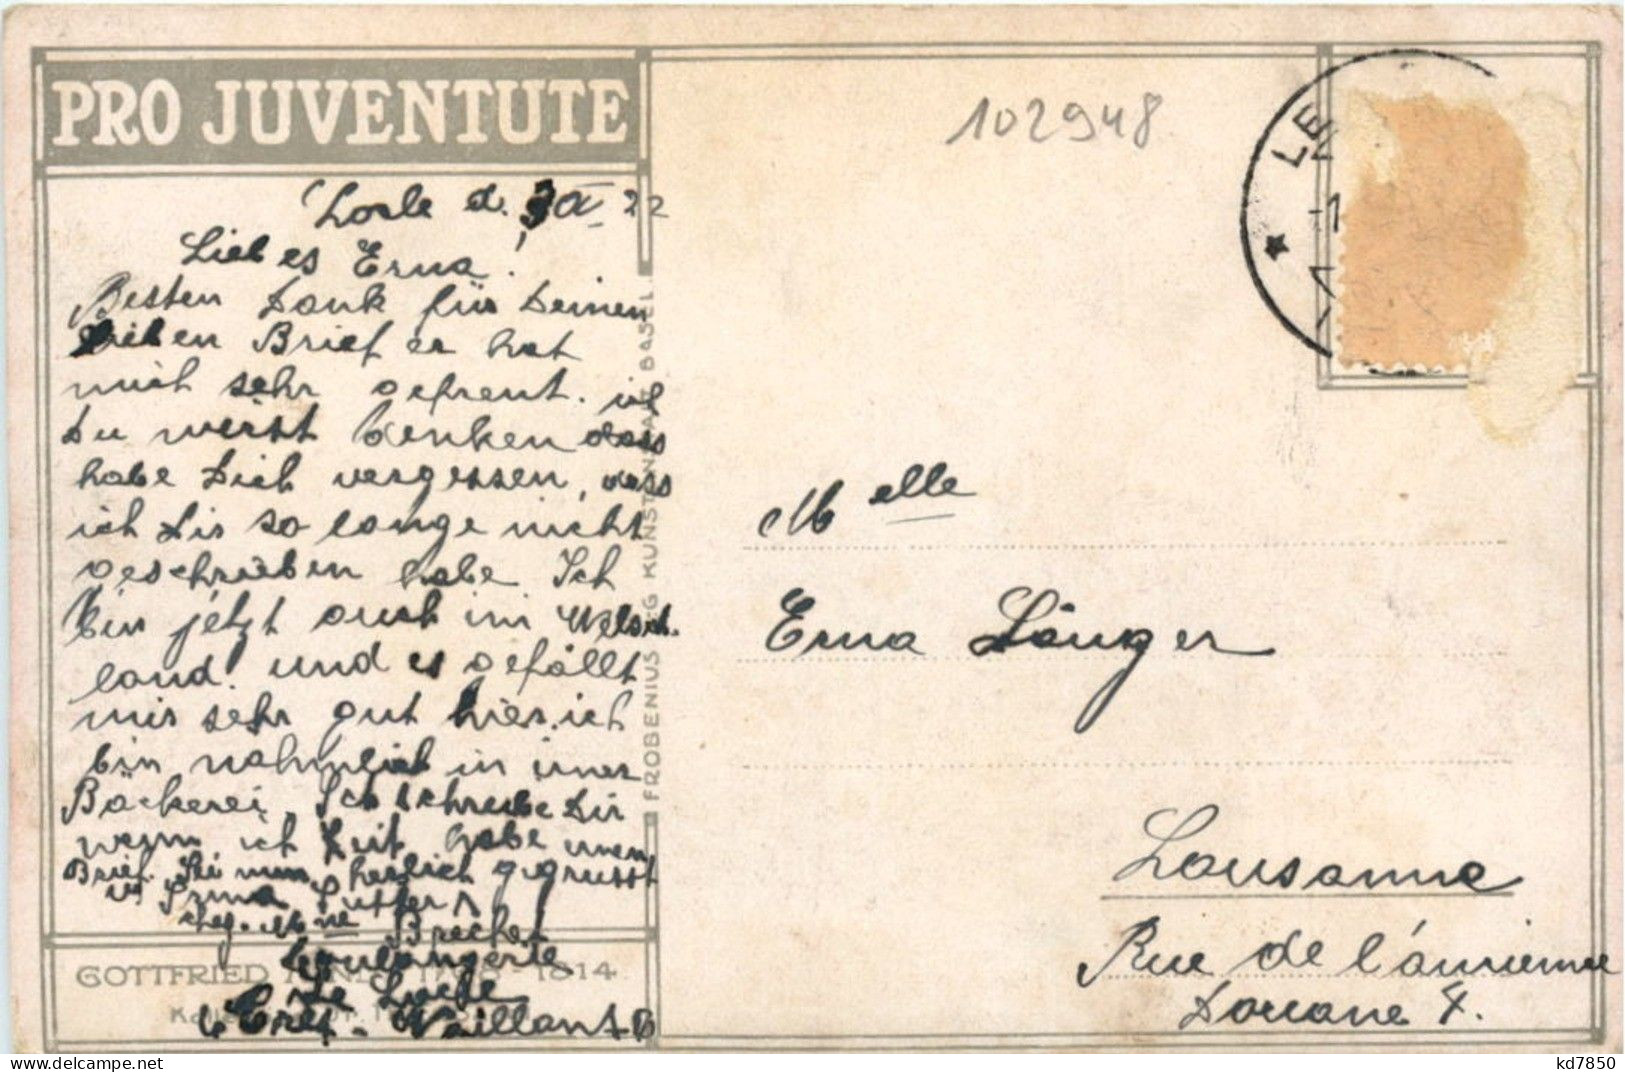 PRO JUVENTUTE
102948
LE
Locle d. 3 IX 22
Liebes Erna!
Besten Dank für Deinen
lieben Brief er hat
mich sehr gefreut. ich
Du wirst denken dass
habe Dich vergessen, dass
ich Dir so lange nicht
geschrieben habe Ich
bin jetzt auch im Welsch-
land. und es gefällt
mir sehr gut hier. ich
bin nähmlich in einer
Bäckerei. Ich schreibe Dir
wenn ich Zeit habe einen
Brief. Sei nun herlich gegrüsst
v. Irma
chez. Mme Brechet
Boulangerie
Le Locle
Crêt-Vaillant
GOTTFRIED 1814
FROBENIUS A-G KUNSTANSTALT BASEL
Melle
Erna Länger
Lausanne
Rue de l'ancienne
Douane 7.
www.delcampe.net
kd7850